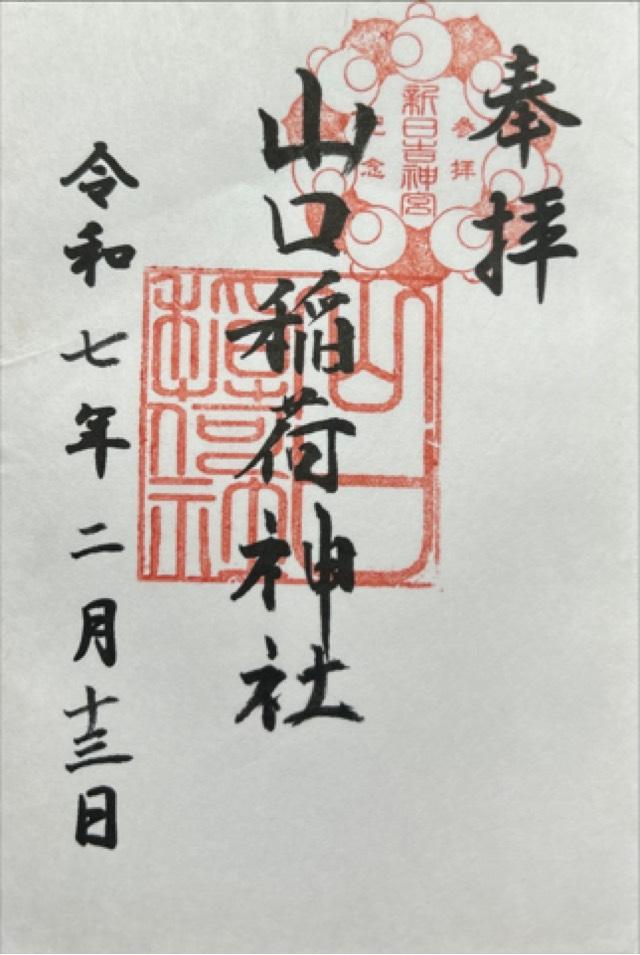 奉拝
新日吉神宮
参拝
記念
山口稲荷神社
山口稲荷社
令和七年二月十三日